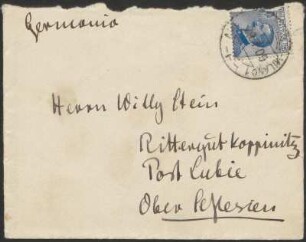 Germania
MILANO
09
Herrn Willy Stein
Rittergut Koppinitz
Post Lubie
Ober Schlesien